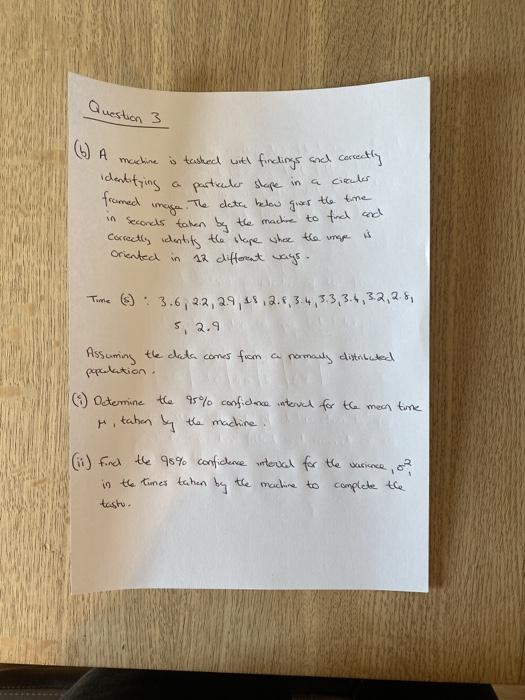 Question 3
(b) A machine is tasked with findings and correctly
identifying a particular shape in a circular
framed image. The data below gives the time
in seconds taken by the machine to find and
correctly identify the shape when the image is
oriented in 12 different ways.
Time (s) : 3.6, 2.2, 2.9, 2.8, 3.4, 3.3, 3.4, 3.2, 2.8,
5, 2.9
Assuming the data comes from a normally distributed
population.
(i) Determine the 95% confidence interval for the mean time
μ, taken by the machine.
(ii) Find the 98% confidence interval for the variance, σ²,
in the times taken by the machine to complete the
task.